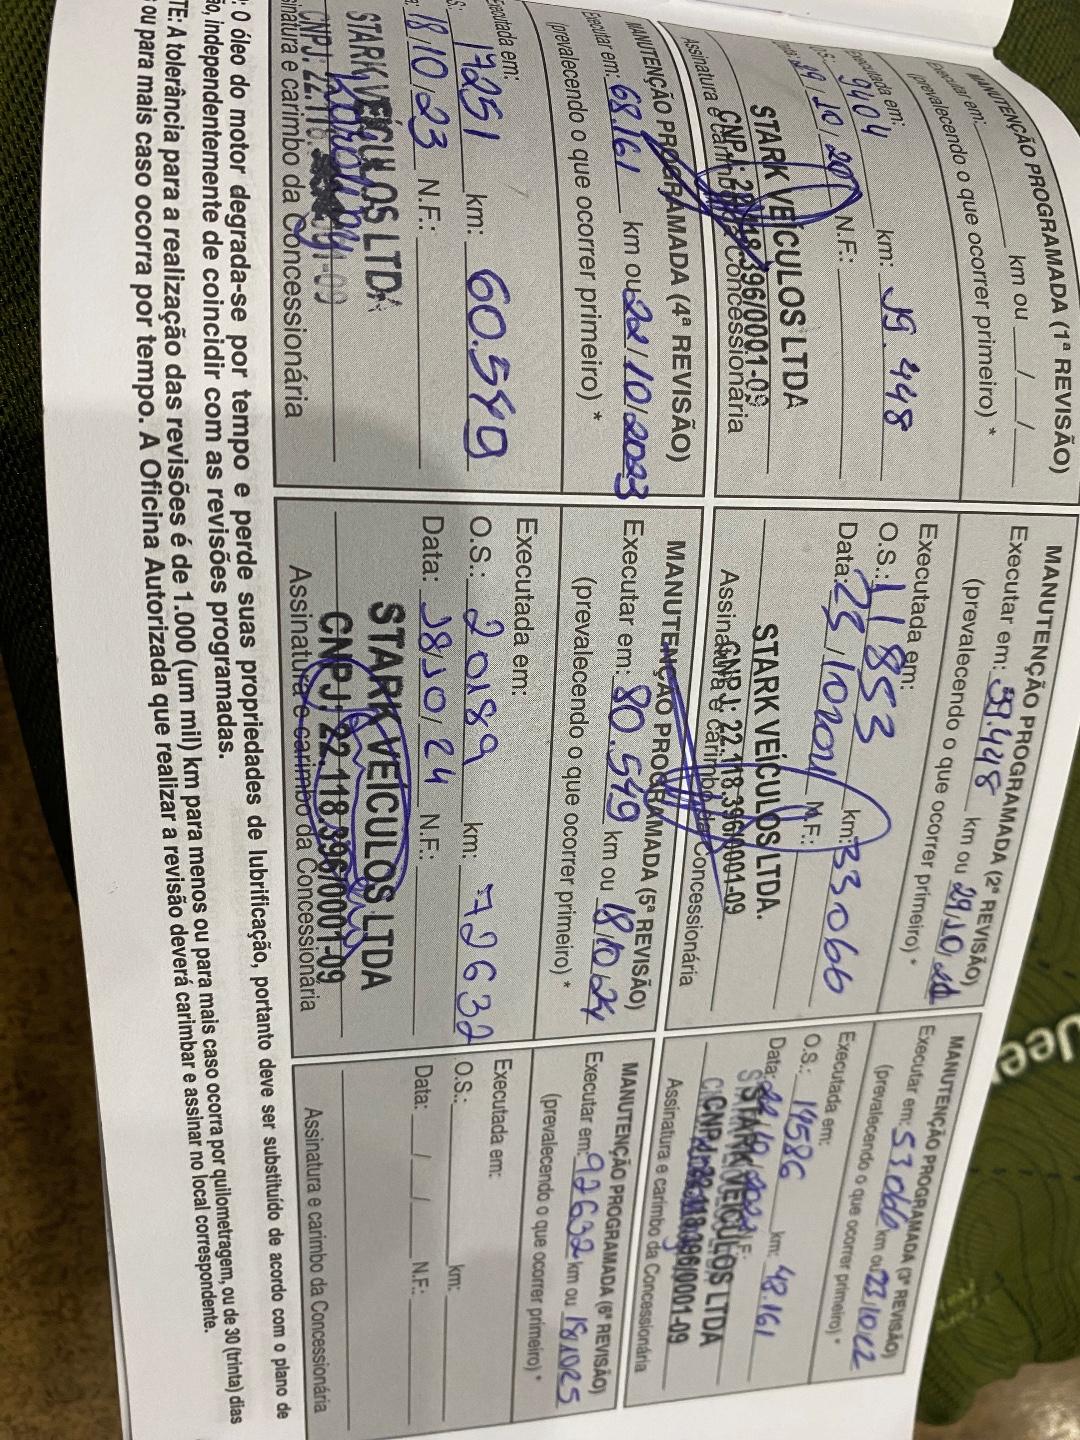 MANUTENÇÃO PROGRAMADA (1ª REVISÃO)
Executar em: km ou / /
(prevalecendo o que ocorrer primeiro) *
Executada em:
O.S.: 9404 km: 19.448
Data: 29/10/20 N.F.:
STARK VEÍCULOS LTDA
CNPJ: 22.118.396/0001-09
Assinatura e carimbo da Concessionária
MANUTENÇÃO PROGRAMADA (2ª REVISÃO)
Executar em: 39.448 km ou 29/10/21
(prevalecendo o que ocorrer primeiro) *
Executada em:
O.S.: 11853 km: 33066
Data: 23/10/2021 N.F.:
STARK VEÍCULOS LTDA.
CNPJ: 22.118.396/0001-09
Assinatura e carimbo da Concessionária
MANUTENÇÃO PROGRAMADA (3ª REVISÃO)
Executar em: 53066 km ou 23/10/22
(prevalecendo o que ocorrer primeiro) *
Executada em:
O.S.: 14586 km: 48.161
Data: 22/10/2022 N.F.:
STARK VEÍCULOS LTDA
CNPJ: 22.118.396/0001-09
Assinatura e carimbo da Concessionária
MANUTENÇÃO PROGRAMADA (4ª REVISÃO)
Executar em: 68.161 km ou 22/10/2023
(prevalecendo o que ocorrer primeiro) *
Executada em:
S: 17251 km: 60.549
18/10/23 N.F.:
STARK VEÍCULOS LTDA
CNPJ: 22.118. -09
Assinatura e carimbo da Concessionária
MANUTENÇÃO PROGRAMADA (5ª REVISÃO)
Executar em: 80.549 km ou 18/10/24
(prevalecendo o que ocorrer primeiro) *
Executada em:
O.S.: 20189 km: 72632
Data: 18/10/24 N.F.:
STARK VEÍCULOS LTDA
CNPJ: 22.118.396/0001-09
Assinatura e carimbo da Concessionária
MANUTENÇÃO PROGRAMADA (6ª REVISÃO)
Executar em: 92632 km ou 18/10/25
(prevalecendo o que ocorrer primeiro) *
Executada em:
O.S.: km:
Data: / / N.F.:
Assinatura e carimbo da Concessionária
: O óleo do motor degrada-se por tempo e perde suas propriedades de lubrificação, portanto deve ser substituído de acordo com o plano de
ão, independentemente de coincidir com as revisões programadas.
TE: A tolerância para a realização das revisões é de 1.000 (um mil) km para menos ou para mais caso ocorra por quilometragem, ou de 30 (trinta) dias
ou para mais caso ocorra por tempo. A Oficina Autorizada que realizar a revisão deverá carimbar e assinar no local correspondente.
Jeep